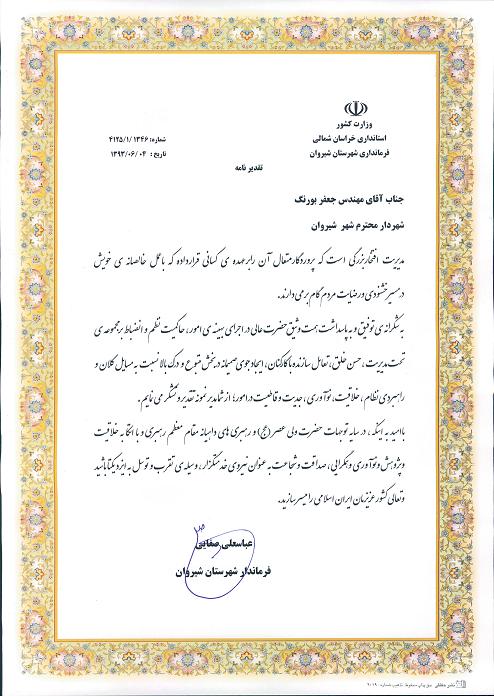 وزارت کشور
استانداری خراسان شمالی
فرمانداری شهرستان شیروان
شماره: ۴۱۲۵/۱/۱۳۴۶
تاریخ : ۱۳۹۳/۰۶/۰۴
تقدیر نامه
جناب آقای مهندس جعفر بورنگ
شهردار محترم شهر شیروان
مدیریت افتخار بزرگی است که پروردگار متعال آن را بر عهده ی کسانی قرار داده که با عمل خالصانه ی خویش
در مسیر خشنودی و رضایت مردم گام بر می دارند.
به شکرانه ی توفیق و به پاسداشت همت وثیق حضرت عالی در اجرای بهینه ی امور، حاکمیت نظم و انضباط بر مجموعه ی
تحت مدیریت، حسن خلق، تعامل سازنده با کارکنان، ایجاد جوی صمیمانه در بخش متبوع و درک بالا نسبت به مسایل کلان و
راهبردی نظام، خلاقیت، نوآوری، جدیت و قاطعیت در امور؛ از شما مدیر نمونه تقدیر و تشکر می نمایم.
با امید به اینکه، در سایه توجهات حضرت ولی عصر (عج) و رهبری های داهیانه مقام معظم رهبری و با اتکا به خلاقیت
و پژوهش و نوآوری و همگرایی، صداقت و شجاعت به عنوان نیروی خدمتگزار، وسیله ی تقرب و توسل به ایزد یکتا باشید
و تعالی کشور عزیزمان ایران اسلامی را میسر سازید.
عباسعلی صفایی
فرماندار شهرستان شیروان